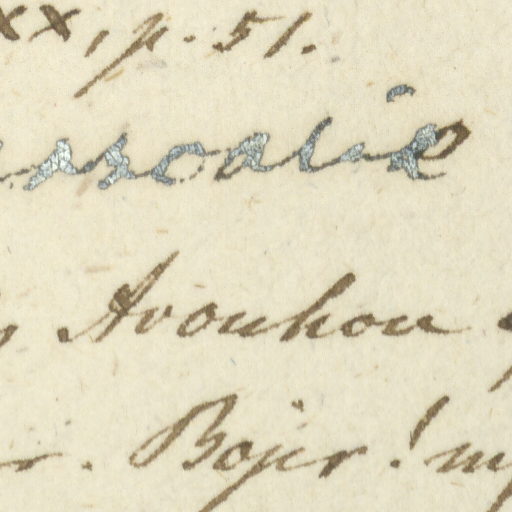 XX, p. 51.
ssoalie
Avouhou
r. Bojer! m